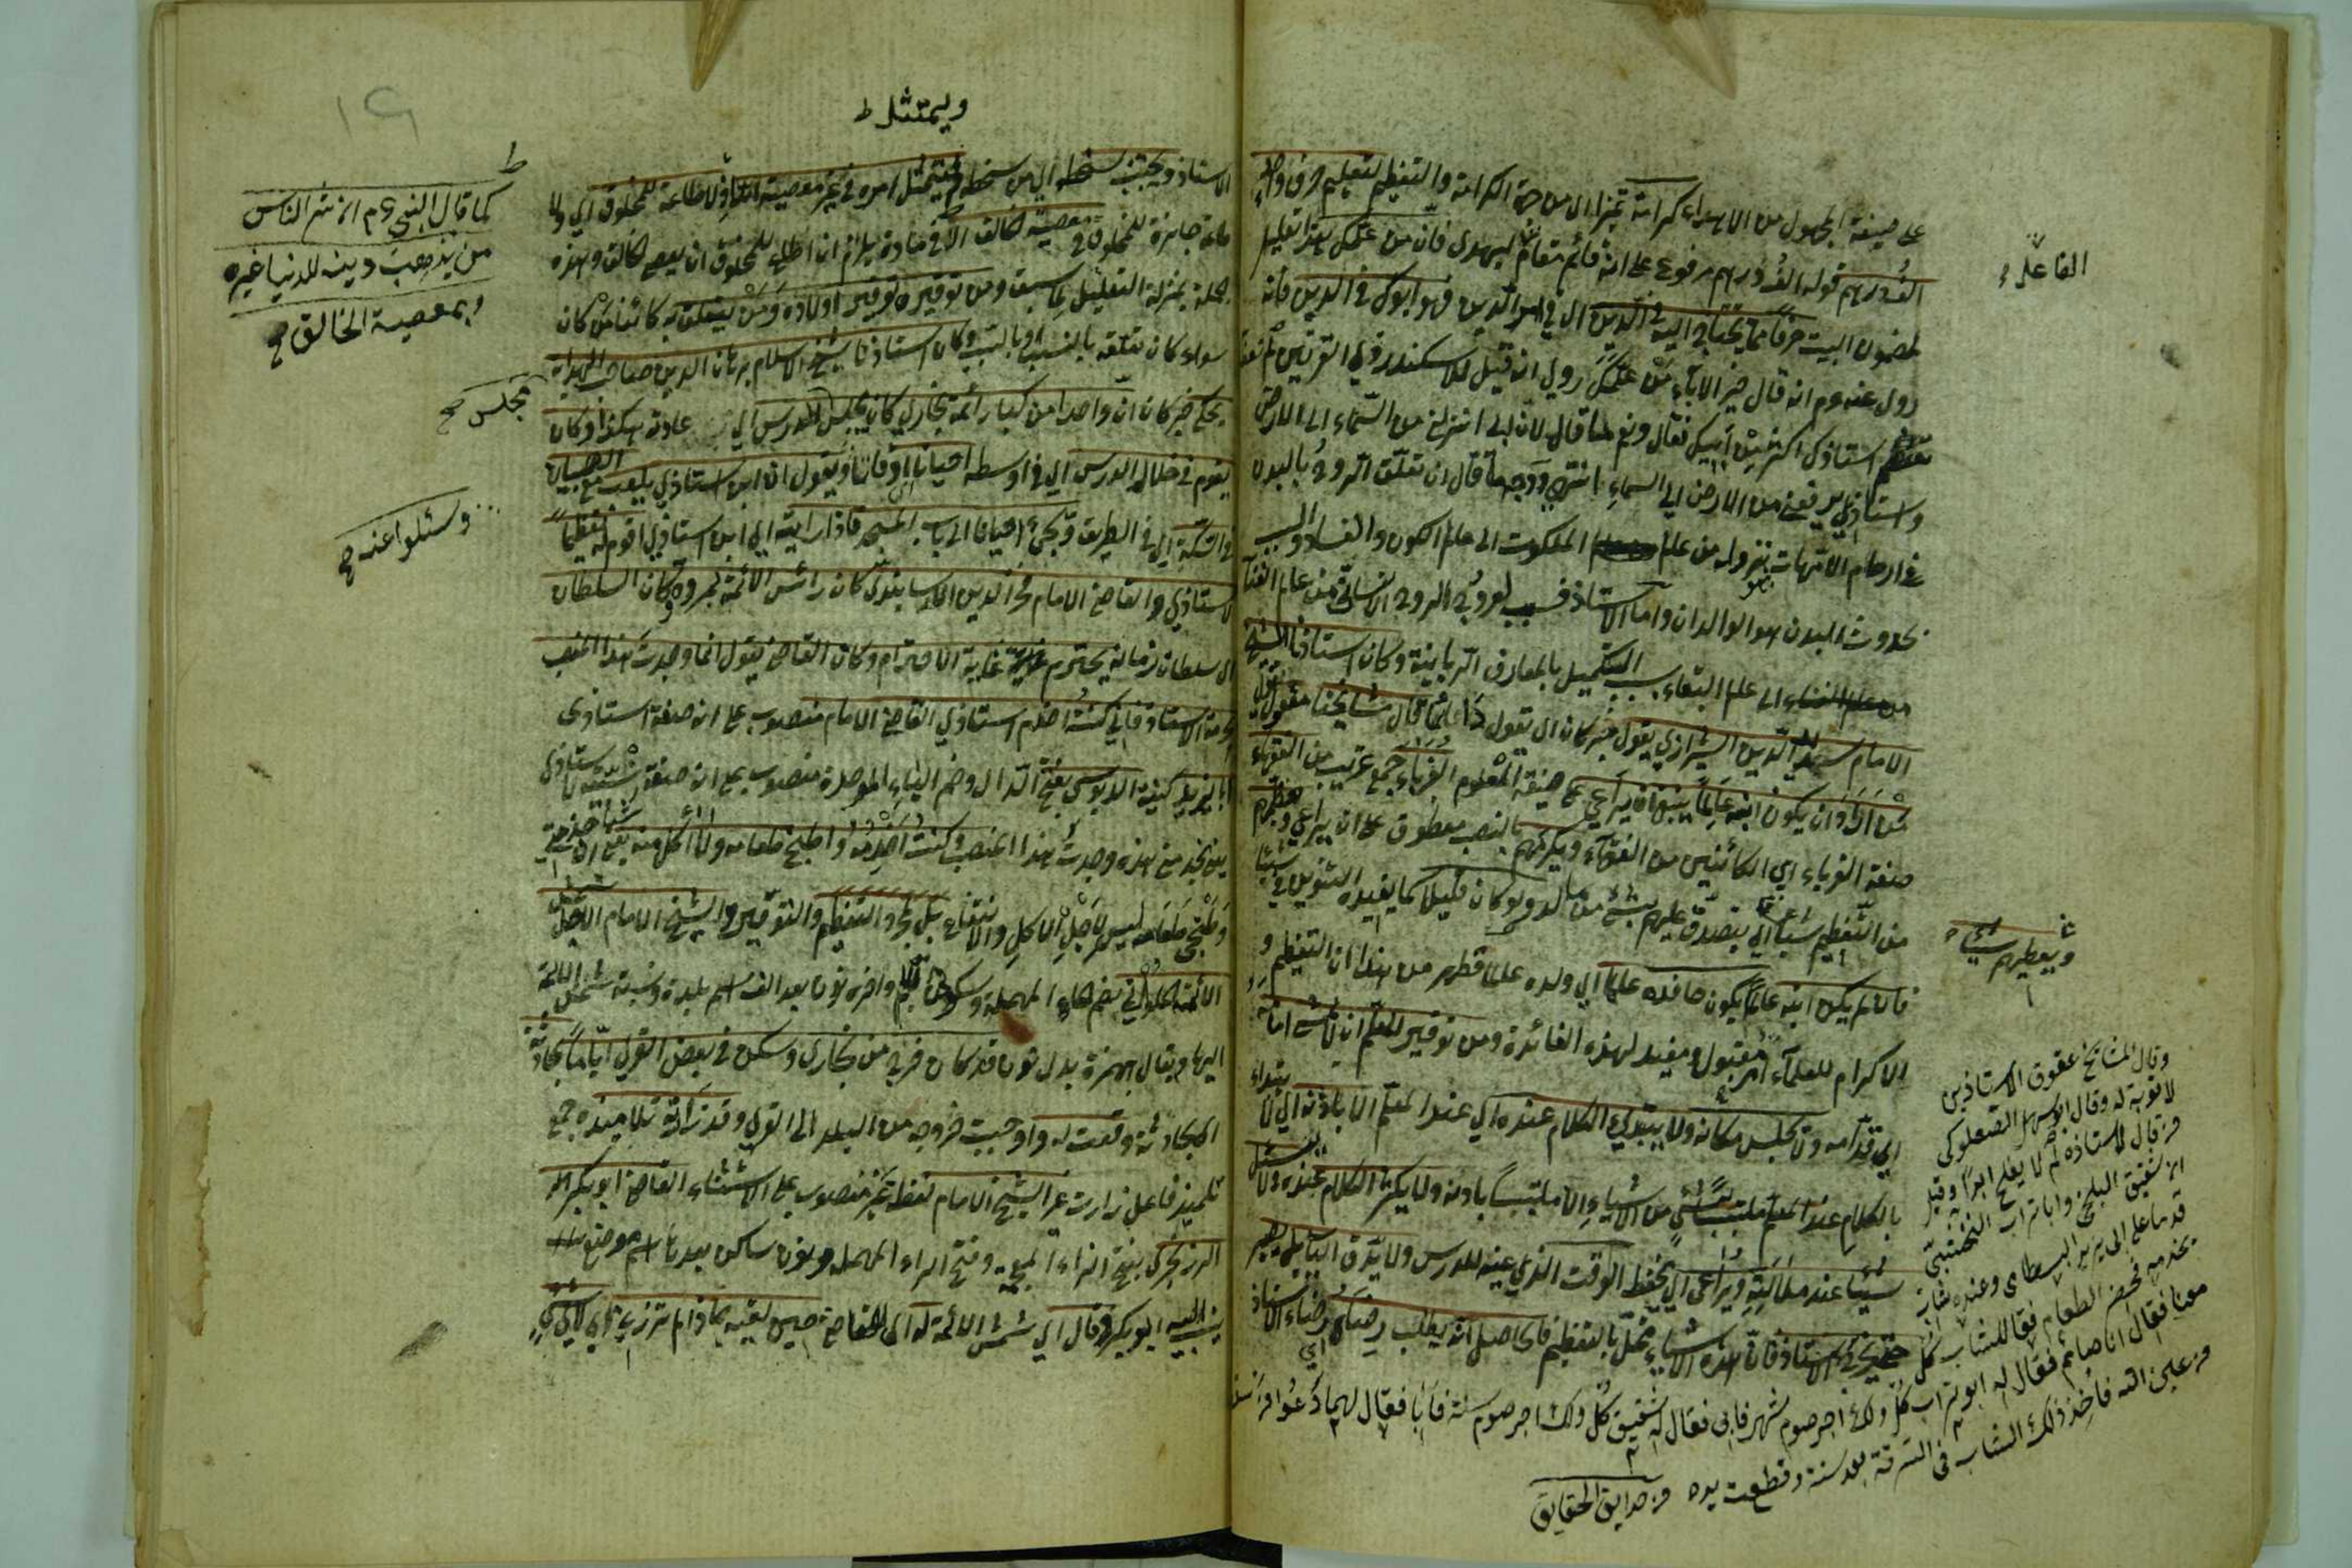 على صيغة المجهول من الاهداء كرامة تميزا اى من جهة الكرامة والتعظيم لتعليم حرف واحد
الف درهم قوله الف درهم مرفوع على انه قائم مقام ليهدى فان من علمك هذا تعليل
لمضمون البيت حرفا مما يحتاج اليه في الدين اى في امر الدين فهو ابوك في الدين فانه
روى عنه عم انه قال خير الآباء من علمك روى انه قيل للاسكندر ذي القرنين لم
تعظم استاذك اكثر من ابيك فقال ونعم ما قال لان ابى انزلنى من السماء الى الارض
واستاذى يرفعنى من الارض الى السماء انتهى ووجه ما قال ان تعلق الروح بالبدن
في ارحام الامهات بنزوله من عالم الملكوت الى عالم الكون والفساد والسبب
لحدوث البدن هو الوالدان واما الاستاذ فسبب لعروج الروح الانسانى من عالم الفناء
الى عالم البقاء بسبب التكميل بالمعارف الربانية وكان استاذنا الشيخ
الامام سديد الدين الشيرازي يقول خبر كان اى يقول دائما قال مشايخنا مقول يقول
من اراد ان يكون ابنه عالما ينبغى ان يراعى على صيغة المعلوم الغرباء جمع غريب من الفقهاء
صفة الغرباء اى الكائنين من الفقهاء ويكرمهم بالنصب معطوف على ان يراعى ويعظمهم
من التعظيم شيئا اى يتصدق عليهم بشئ من ماله ولو كان قليلا كما يفيده التنوين في شيئا
فان لم يكن ابنه عالما يكون حافده عالما اى ولده علما فظهر من هذا ان التعظيم و
الاكرام للعلماء امر مقبول ومفيد لهذه الفائدة ومن توقير المعلم ان لا يمشى امامه
اى قدامه ولا يجلس مكانه ولا يبتدئ الكلام عنده اى عند المعلم الا باذنه اى لا يبتداء
بالكلام عند المعلم ملتبسا بشئ من الاشياء الا ملتبسا باذنه ولا يكثر الكلام عنده ولا يسئل
شيئا عند ملالته ويراعى اى يحفظ الوقت الذي عينه للدرس ولا يدق الباب بل يصبر
حتى يخرج الاستاذ فان هذه الاشياء مخل بالتعظيم فالحاصل انه يطلب رضاه اى رضاء الاستاذ
القاعل
ويعطيهم شيئا
وقال المشايخ عقوق الاستاذين
لا توبة له وقال ابو سهل الصعلوكى
من قال لاستاذه لم لا يفلح ابدا وقيل
ان شقيق البلخى وابا تراب النخشبى
قدما على ابى يزيد البسطامى وعنده شاب
يخدمه فحضر الطعام فقالا للشاب كل
معنا فقال انا صائم فقال له ابو تراب كل ولك اجر صوم شهر فابى فقال له شقيق كل ولك اجر صوم سنة فابى فقال لهما دعوا من سقط
من عين الله فاخذ ذلك الشاب في السرقة بعد سنة وقطعت يده من حدايق الحقايق
ويمتثل ط
الاستاذ ويجتنب سخطه اى من سخطه ويمتثل امره في غير معصية الله اذ لا طاعة للمخلوق اى ولا
طاعة جائزة للمخلوق في معصية الخالق
جملة بمنزلة التعليل لما سبق ومن توقيره توقير اولاده ومن يتعلق به كائنا من كان
سواء كان تعلقه بالنسب او بالسبب وكان استاذنا شيخ الاسلام برهان الدين صاحب الهداية
يحكى خبر كان ان واحدا من كبار ائمة بخارى كان يجلس الدرس اى عادته هكذا وكان
يقوم في خلال الدرس اى في اوسطه احيانا اوقاتا ويقول ان ابن استاذى يلعب مع الصبيان
في السكة اى في الطريق ويجئ احيانا الى باب المسجد فاذا رايته اى ابن استاذى اقوم له تعظيما
لاستاذى والقاضى الامام فخر الدين الارسابندى كان رائس الائمة بمرو وكان السلطان
اى سلطان زمانه يحترمه غاية الاحترام وكان القاضى يقول انما وجدت هذا المنصب
بخدمة الاستاذ فانى كنت اخدم استاذى القاضى الامام منصوب على انه صفة استاذى
ابا زيد كنيته الدبوسى بفتح الدال وضم الباء الموحدة منصوب على انه صفة
هذه وجدت هذا المنصب وكنت اخدمه واطبخ طعامه ولا آكل منه
وطبخى طعامه ليس لاجل الاكل والانتفاع بل لمجرد التعظيم والتوقير والشيخ الامام الاجل شمس
الائمة الحلوانى بضم الحاء المهملة وسكون اللام وآخره نون بعد الف اسم بلدة ونسبة شمس الائمة
اليها ويقال بهمزة بدل نون قد كان خرج من بخارى وسكن في بعض القرى اياما بحادثة
اى بحادثة وقعت له واوجبت خروجه من البلد الى القرى وقد زاره تلاميذه جمع
تلميذ فاعل زارت غير الشيخ الامام لفظ غير منصوب على الاستثناء القاضى ابو بكر
الزرنجرى بفتح الزاء المعجمة وفتح الراء المهملة ونون ساكن بعدها اسم موضع
ينسب اليه ابو بكر وقال اى شمس الائمة له اى للقاضى حين لقيه لماذا لم تزرنى
١٩
ط
كما قال النبى عم ان شر الناس
من يذهب دينه لدنيا غيره
وبمعصية الخالق صح
مجلس صح
وسئلوا عنه صح